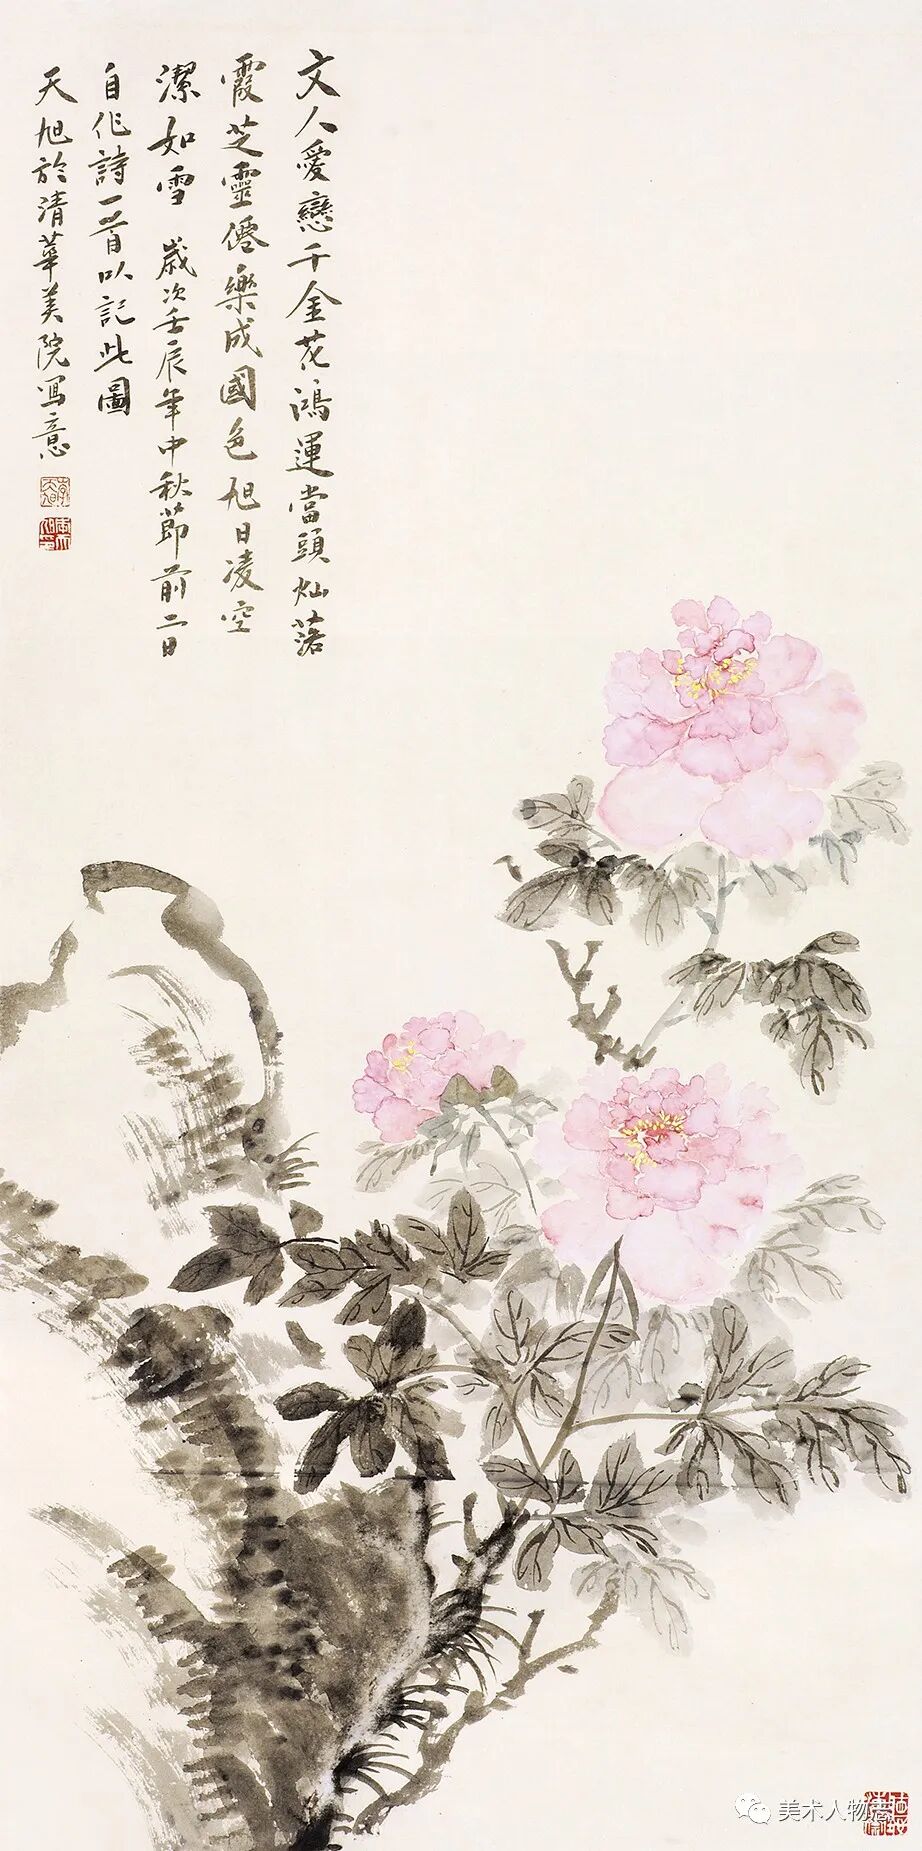 文人愛戀千金花鴻運當頭灿落
霞芝靈僊樂成國色旭日凌空
潔如雪 歲次壬辰年中秋節前二日
自作詩一首以記此圖
天旭於清華美院寫意
美术人物志